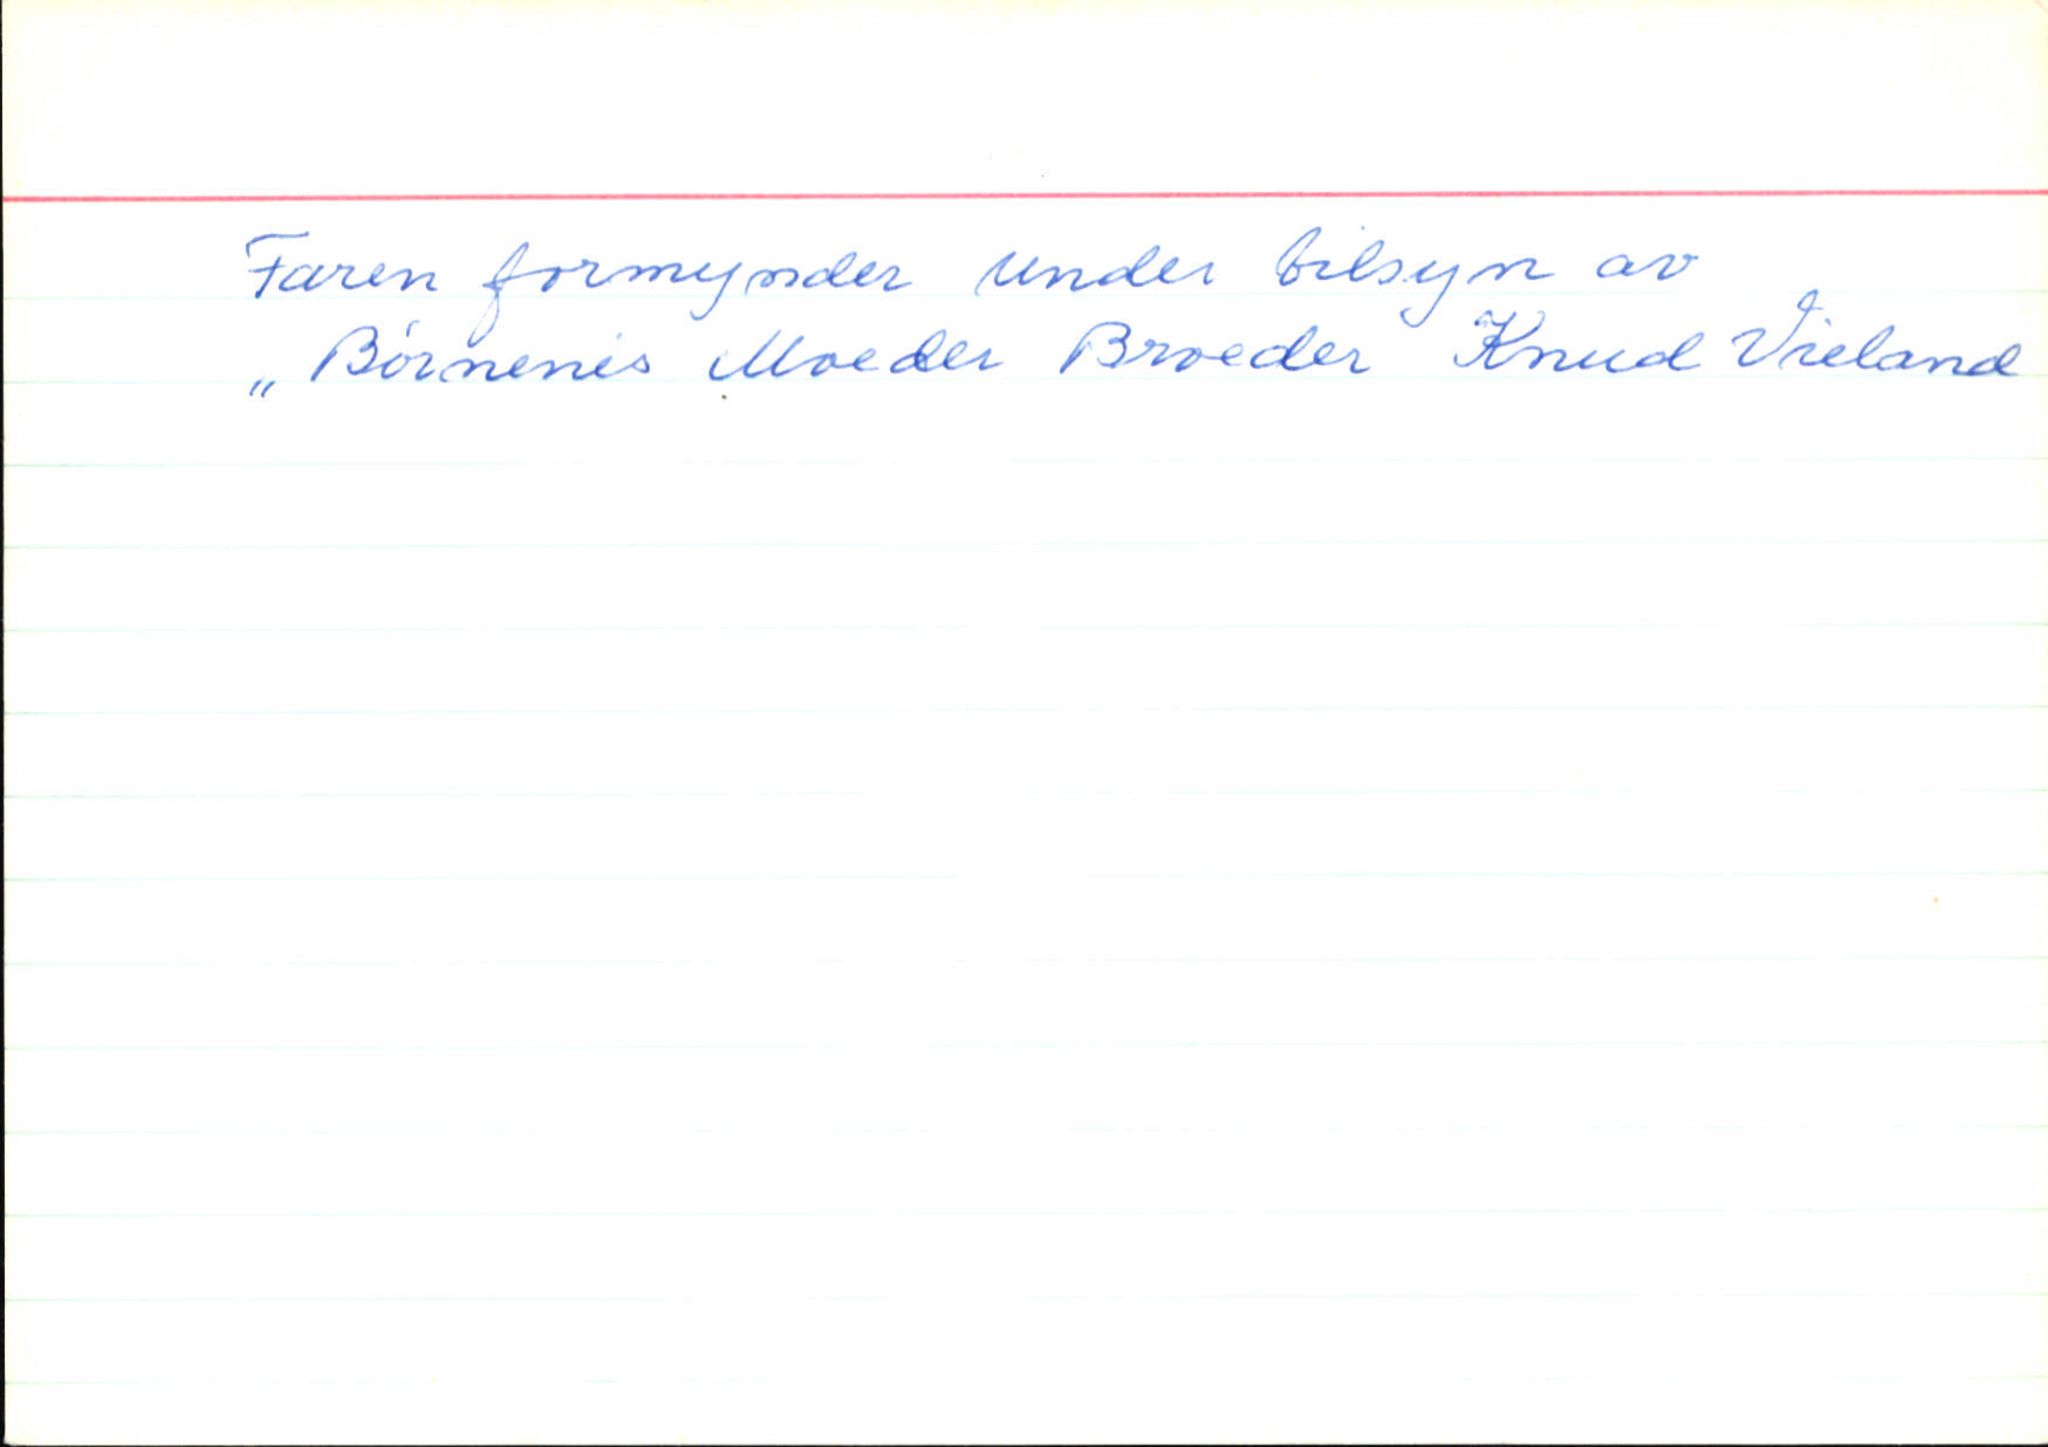 Faren formynder under tilsyn av
„ Børnenes Moeder Broeder Knud Vieland